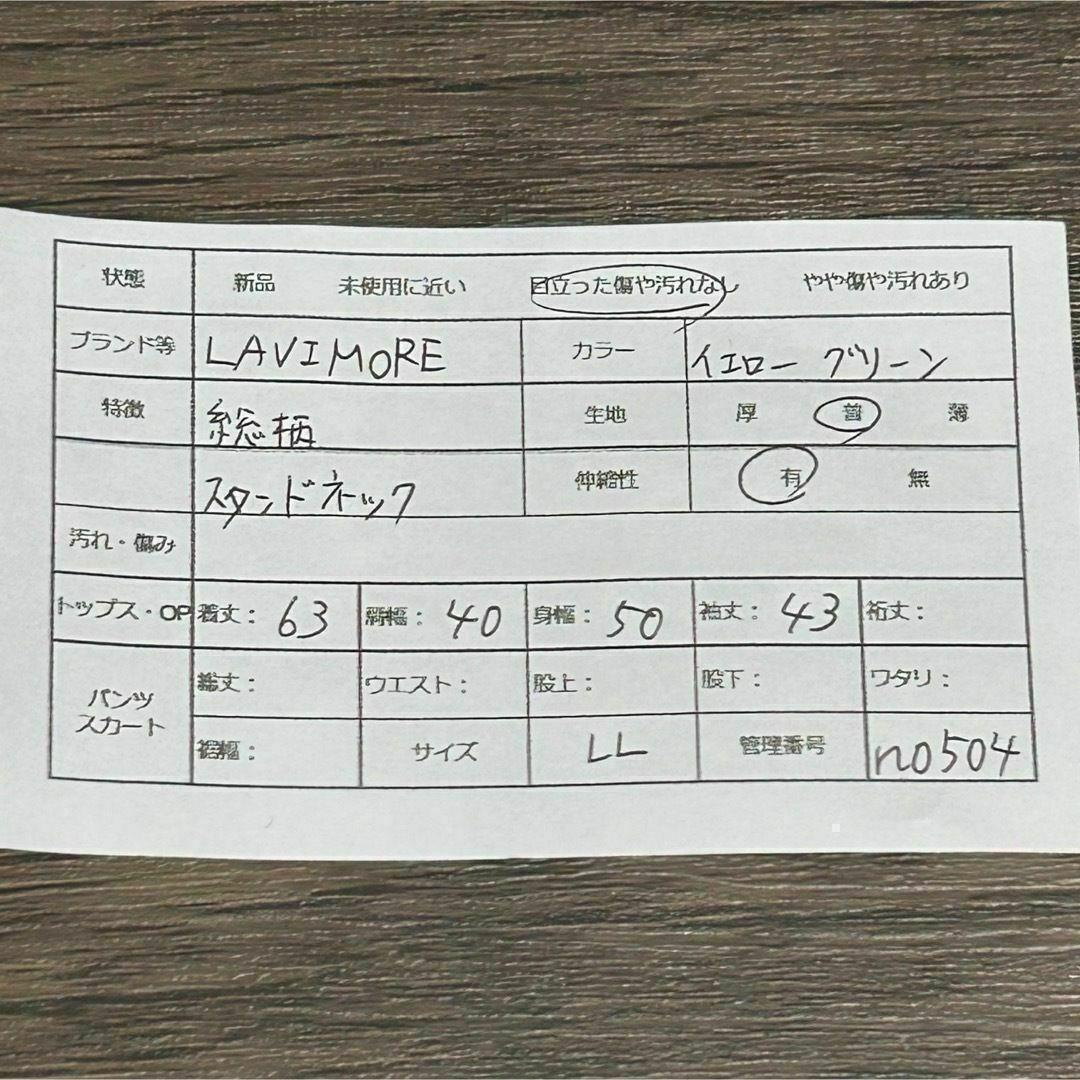 状態 新品 未使用に近い 目立った傷や汚れなし やや傷や汚れあり
ブランド等 LAVIMORE カラー イエロー グリーン
特徴 総柄 生地 厚 普 薄
スタンドネック 伸縮性 有 無
汚れ・傷み
トップス・OP 着丈: 63 肩幅: 40 身幅: 50 袖丈: 43 裄丈:
パンツ スカート 総丈: ウエスト: 股上: 股下: ワタリ:
裾幅: サイズ LL 管理番号 no504